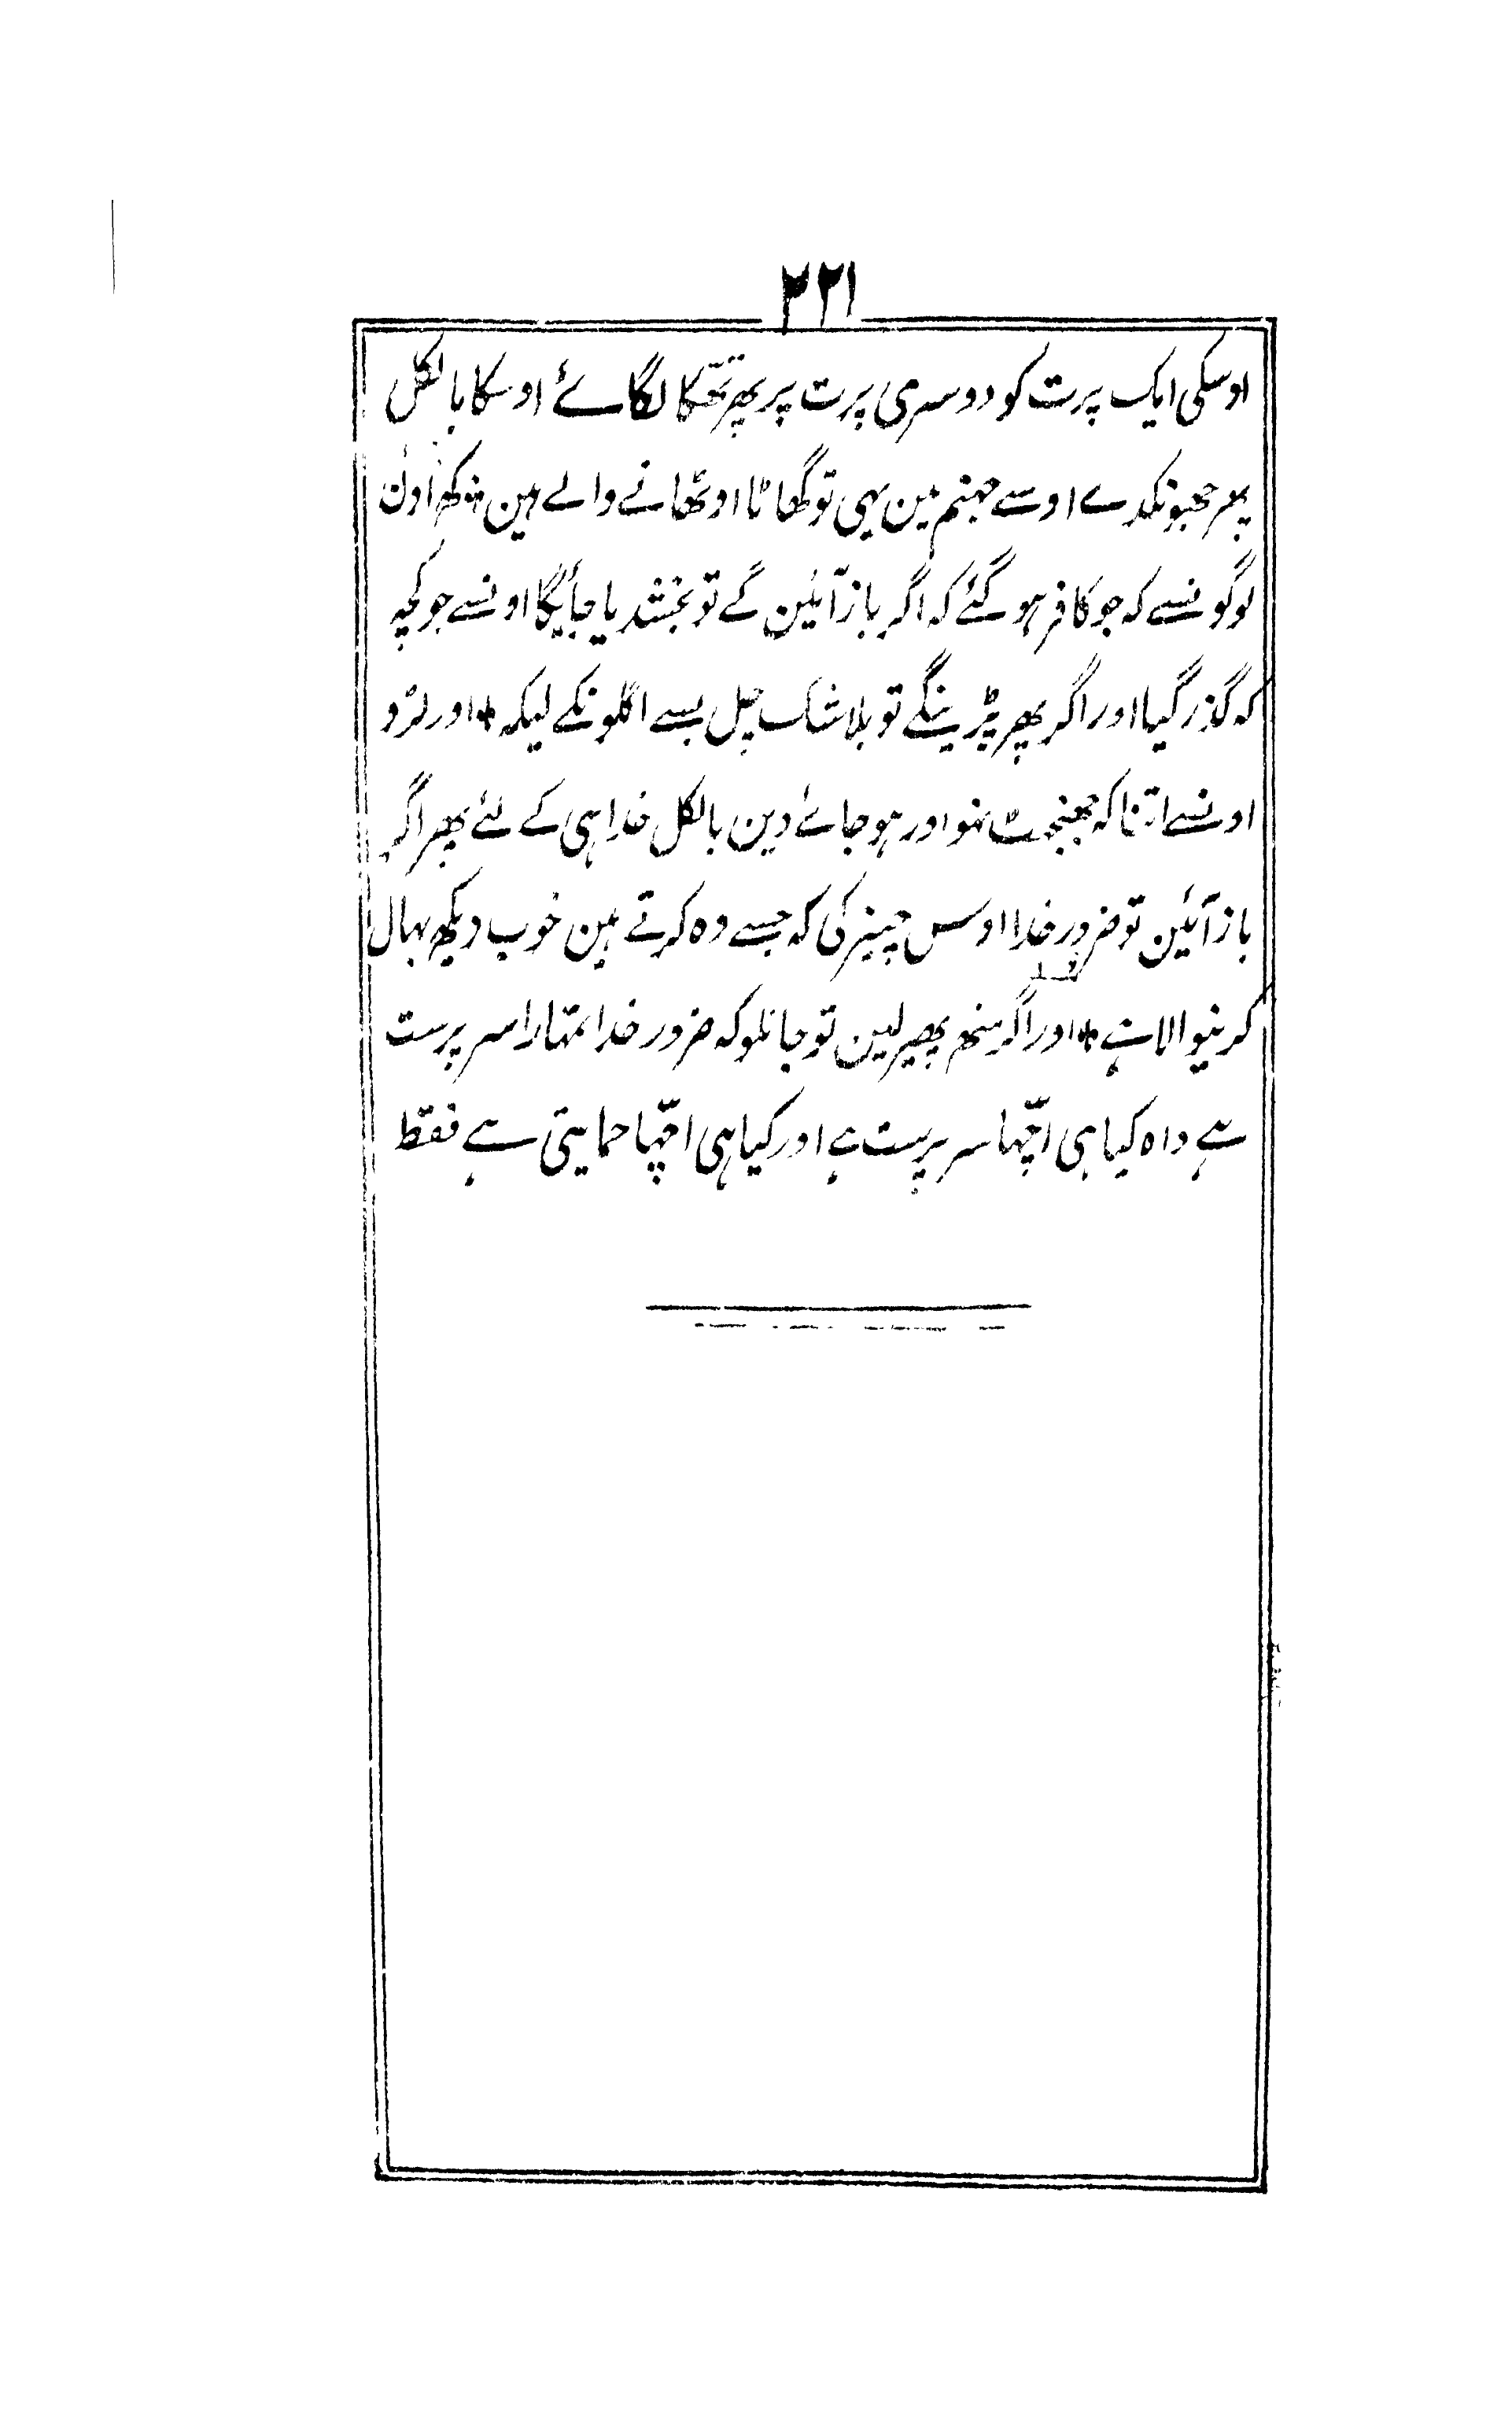 ۲۲۱
اوسکی ایک پرت کو دوسری پرت پر پھر تھکا لگائے اوسکا بالکل
پھر جھونکدے اوسے جہنم مین یہی تو گھاٹا اوٹھانے والے ہین * کھہ اون
لوگونسے کہ جو کافر ہوگئے کہ اگر باز آئین گے تو بخشدیا جائیگا اونسے جو کچہ
کہ گذر گیا اور اگر پھر پڑینگے تو بلاشک چل بسے اگلونکے لیکہ * اور لڑو
اونسے اتنا کہ جھنجھٹ نہو اور ہو جائے دین بالکل خدا ہی کے لئے پھر اگر
باز آئین تو ضرور خدا اوس چیز کی کہ جسے وہ کرتے ہین خوب دیکھ بہال
کرنیوالا ہے * اور اگر منھ پھیر لین تو جانلو کہ ضرور خدا تمہارا سرپرست
ہے واہ کیا ہی اچّہا سرپرست ہے اور کیا ہی اچّہا حمایتی ہے فقط